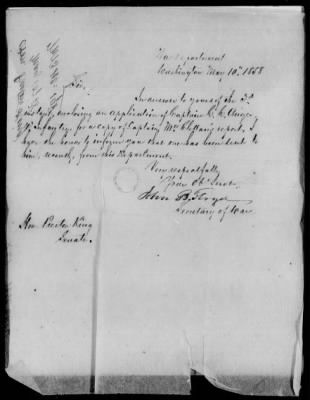 War Department
Washington May 10th 1858
Sir,
In answer to yours of the 3d
instant, enclosing an application of Captain
Infantry, for a copy of Captain McClellan's report, I
have the honor to inform you that one has been sent to
him, recently, from this Department.
Very respectfully
Your Ob Servt
John B. Floyd
Secretary of War
Hon. Preston King
Senate.